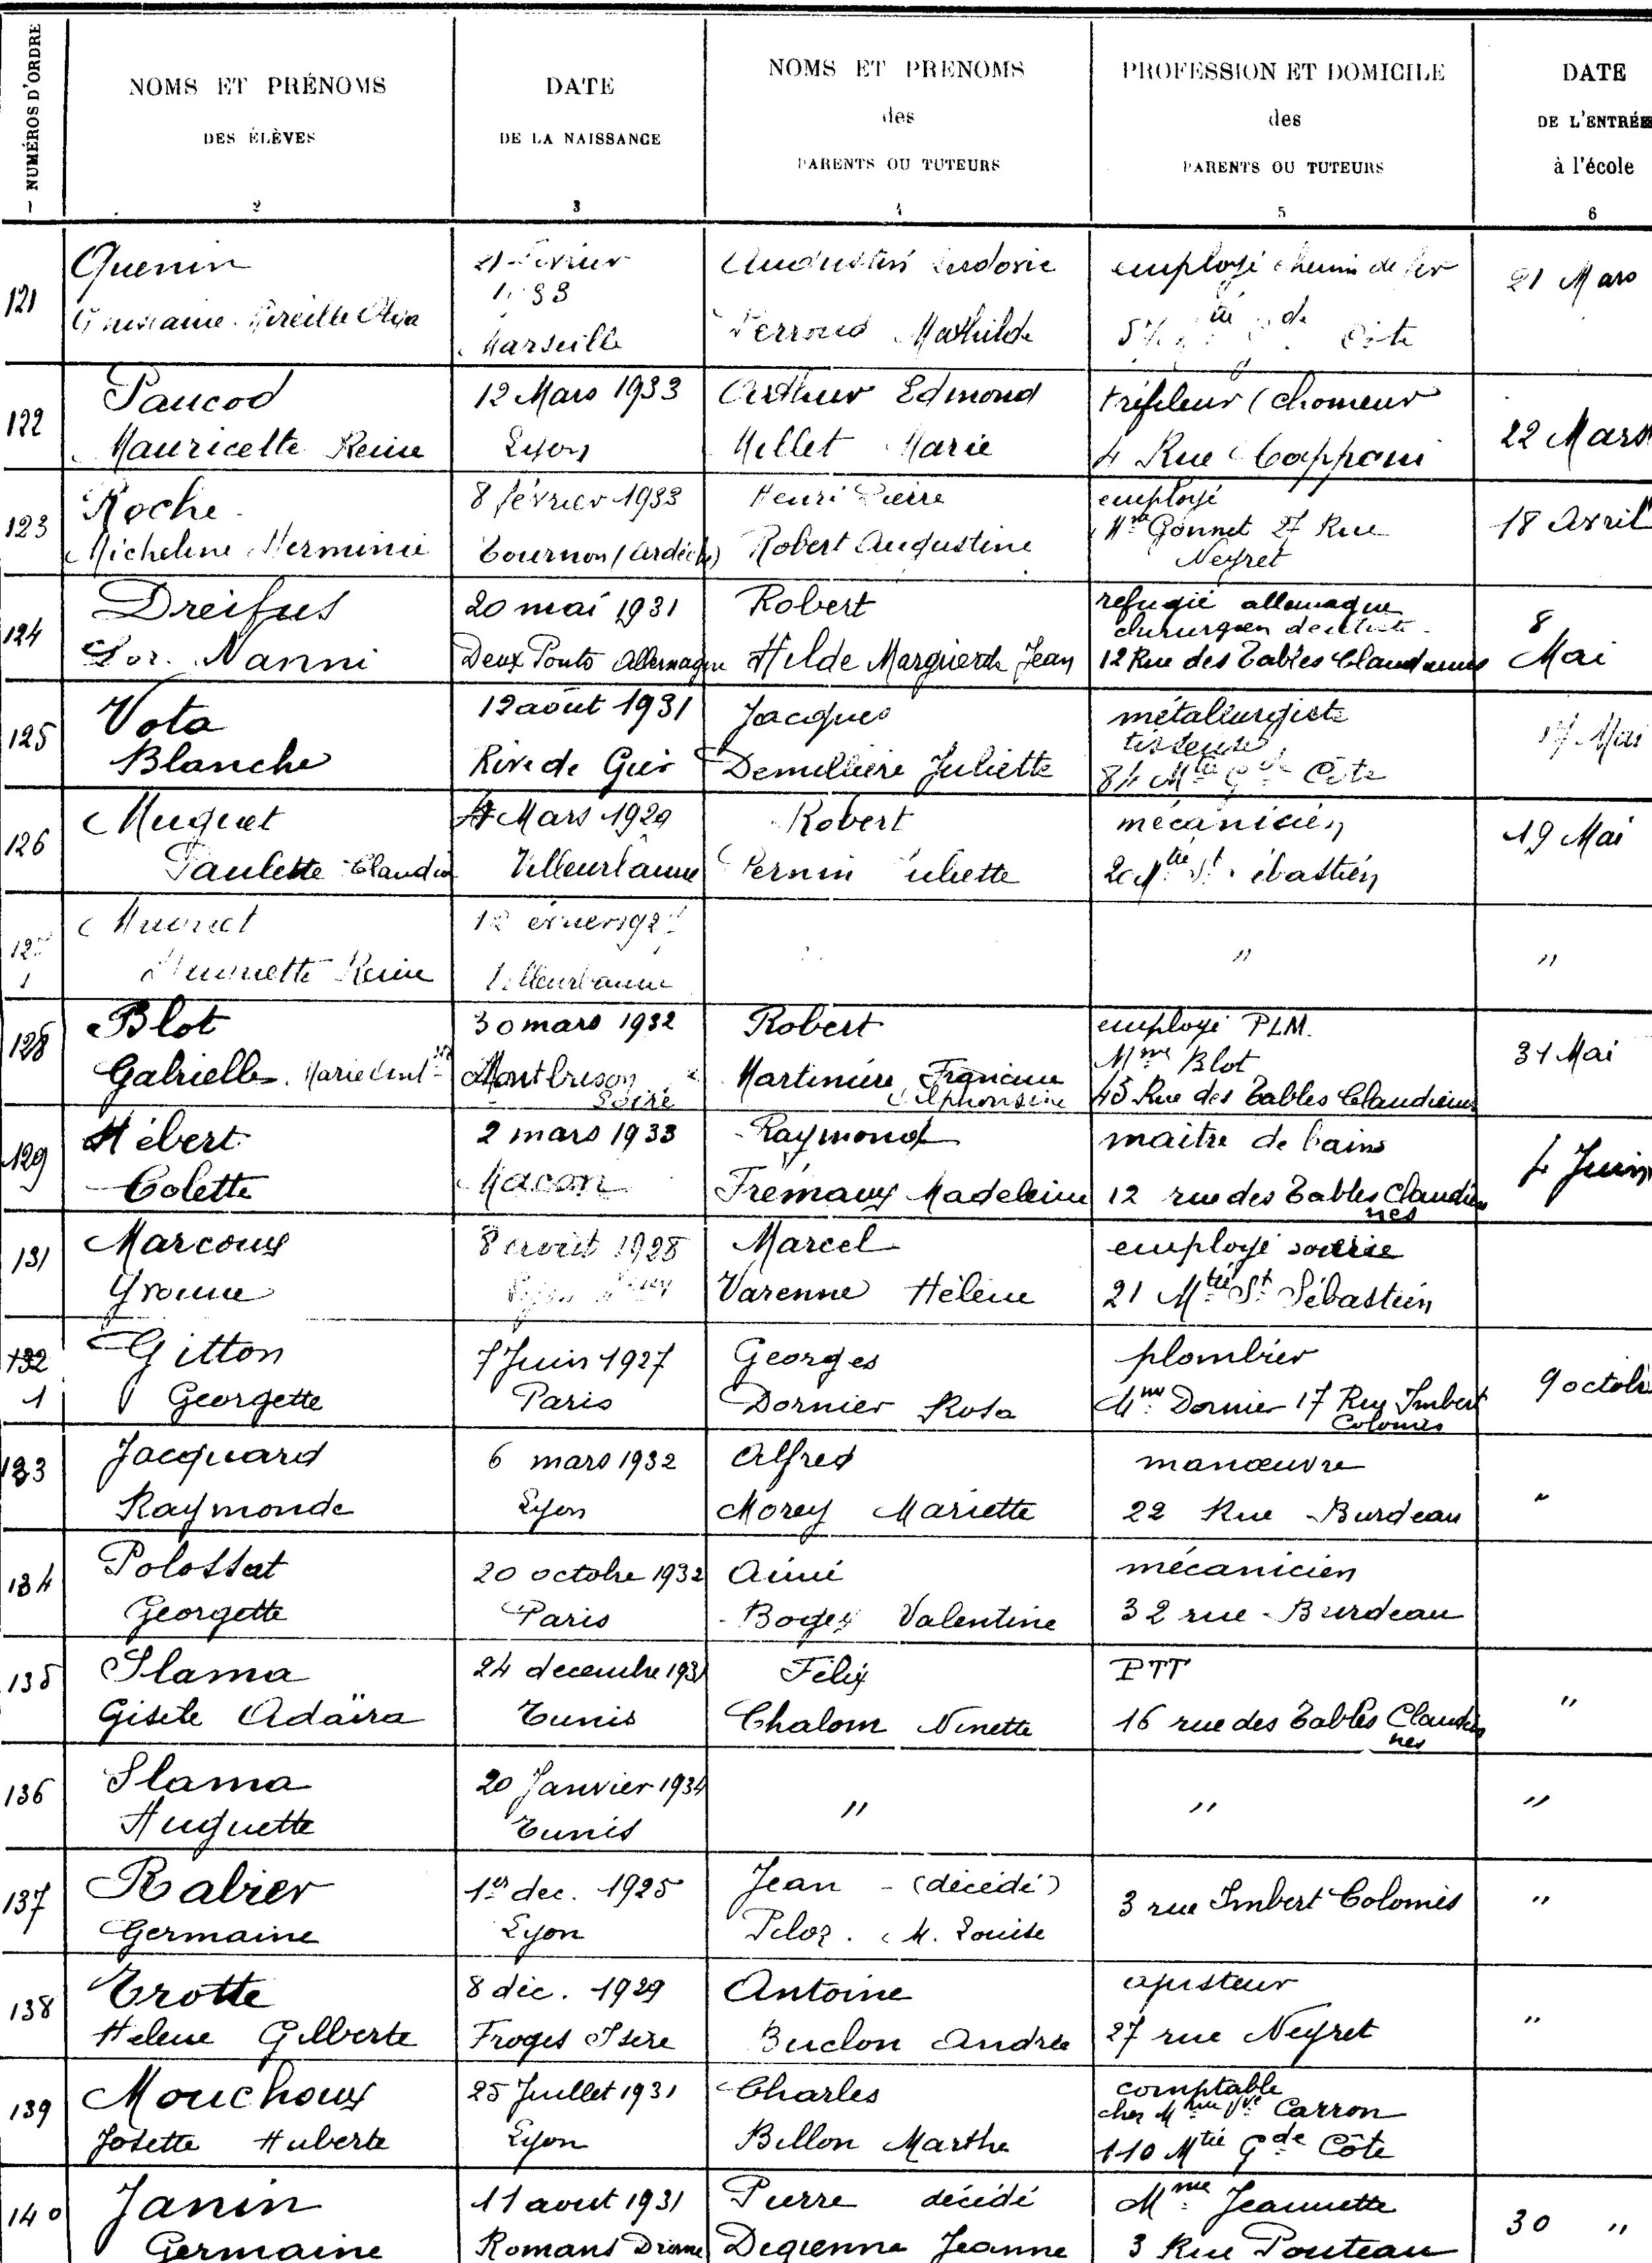 NUMÉROS D'ORDRE
NOMS ET PRÉNOMS
DES ÉLÈVES
2
DATE
DE LA NAISSANCE
3
NOMS ET PRENOMS
des
PARENTS OU TUTEURS
4
PROFESSION ET DOMICILE
des
PARENTS OU TUTEURS
5
DATE
DE L'ENTRÉE
à l'école
6
121
Quenin
Mireille
21 Février
Marseille
Ludovic
Mathilde
employé chemin de fer
Côte
21 Mars
122
Paucod
Mauricette Reine
12 Mars 1933
Lyon
Arthur Edmond
Millet Marie
tréfileur (chomeur
4 Rue Capponi
22 Mars
123
Roche
Micheline Herminie
8 février 1933
Tournon (Ardèche)
Henri Pierre
Robert Augustine
employé
Gonnet 27 Rue
Neyret
18 avril
124
Dreifus
Lor. Nanni
20 mai 1931
Deux Ponts Allemagne
Robert
Hilde Marguerite Jean
refugié allemagne
chirurgien dentiste
12 Rue des Tables Claudiennes
8
Mai
125
Vota
Blanche
12 août 1931
Rive de Gier
Jacques
Demillière Juliette
métallurgiste
tisseuse
84 Mtée Gde Côte
17 Mai
126
Muguet
Paulette Claudia
4 Mars 1929
Villeurbanne
Robert
Pernin Juliette
mécanicien
20 Mtée St Sébastien
19 Mai
1
Muguet
Reine
Villeurbanne
"
"
128
Blot
Gabrielle Marie
30 mars 1932
Montbrison
Loire
Robert
Martinière Francine
Alphonsine
employé PLM.
Mme Blot
45 Rue des Tables Claudiennes
31 Mai
129
Hébert
Colette
2 mars 1933
Macon
Raymond
Frémaux Madeleine
maitre de bains
12 rue des Tables Claudien
nes
4 Juin
131
Marcoux
Yvonne
8 août 1928
Marcel
Varenne Hélène
employé soierie
21 Mtée St Sébastien
132
1
Gitton
Georgette
7 Juin 1927
Paris
Georges
Dornier Rosa
plombier
Mme Dornier 17 Rue Imbert
Colomès
9 octob
133
Jacquard
Raymonde
6 mars 1932
Lyon
Alfred
Morey Mariette
manœuvre
22 Rue Burdeau
"
134
Polossat
Georgette
20 octobre 1932
Paris
Aimé
Bogey Valentine
mécanicien
32 rue Burdeau
135
Slama
Gisèle Adaïra
24 decembre 1931
Tunis
Félix
Chalom Ninette
PTT
16 rue des Tables Claudien
nes
"
136
Slama
Huguette
20 Janvier 1934
Tunis
"
"
"
137
Rabier
Germaine
1er dec. 1925
Lyon
Jean - (décédé)
Peloz. M. Louise
3 rue Imbert Colomès
"
138
Trotte
Helene Gilberte
8 déc. 1929
Froges Isère
Antoine
Buclon Andrée
ajusteur
27 rue Neyret
"
139
Mouchoux
Josette Huberte
25 Juillet 1931
Lyon
Charles
Billon Marthe
comptable
chez Mme Vve Carron
110 Mtée Gde Côte
140
Janin
Germaine
11 aout 1931
Romans Drome
Pierre décédé
Degienne Jeanne
Mme Jeannette
3 Rue Pouteau
30 "